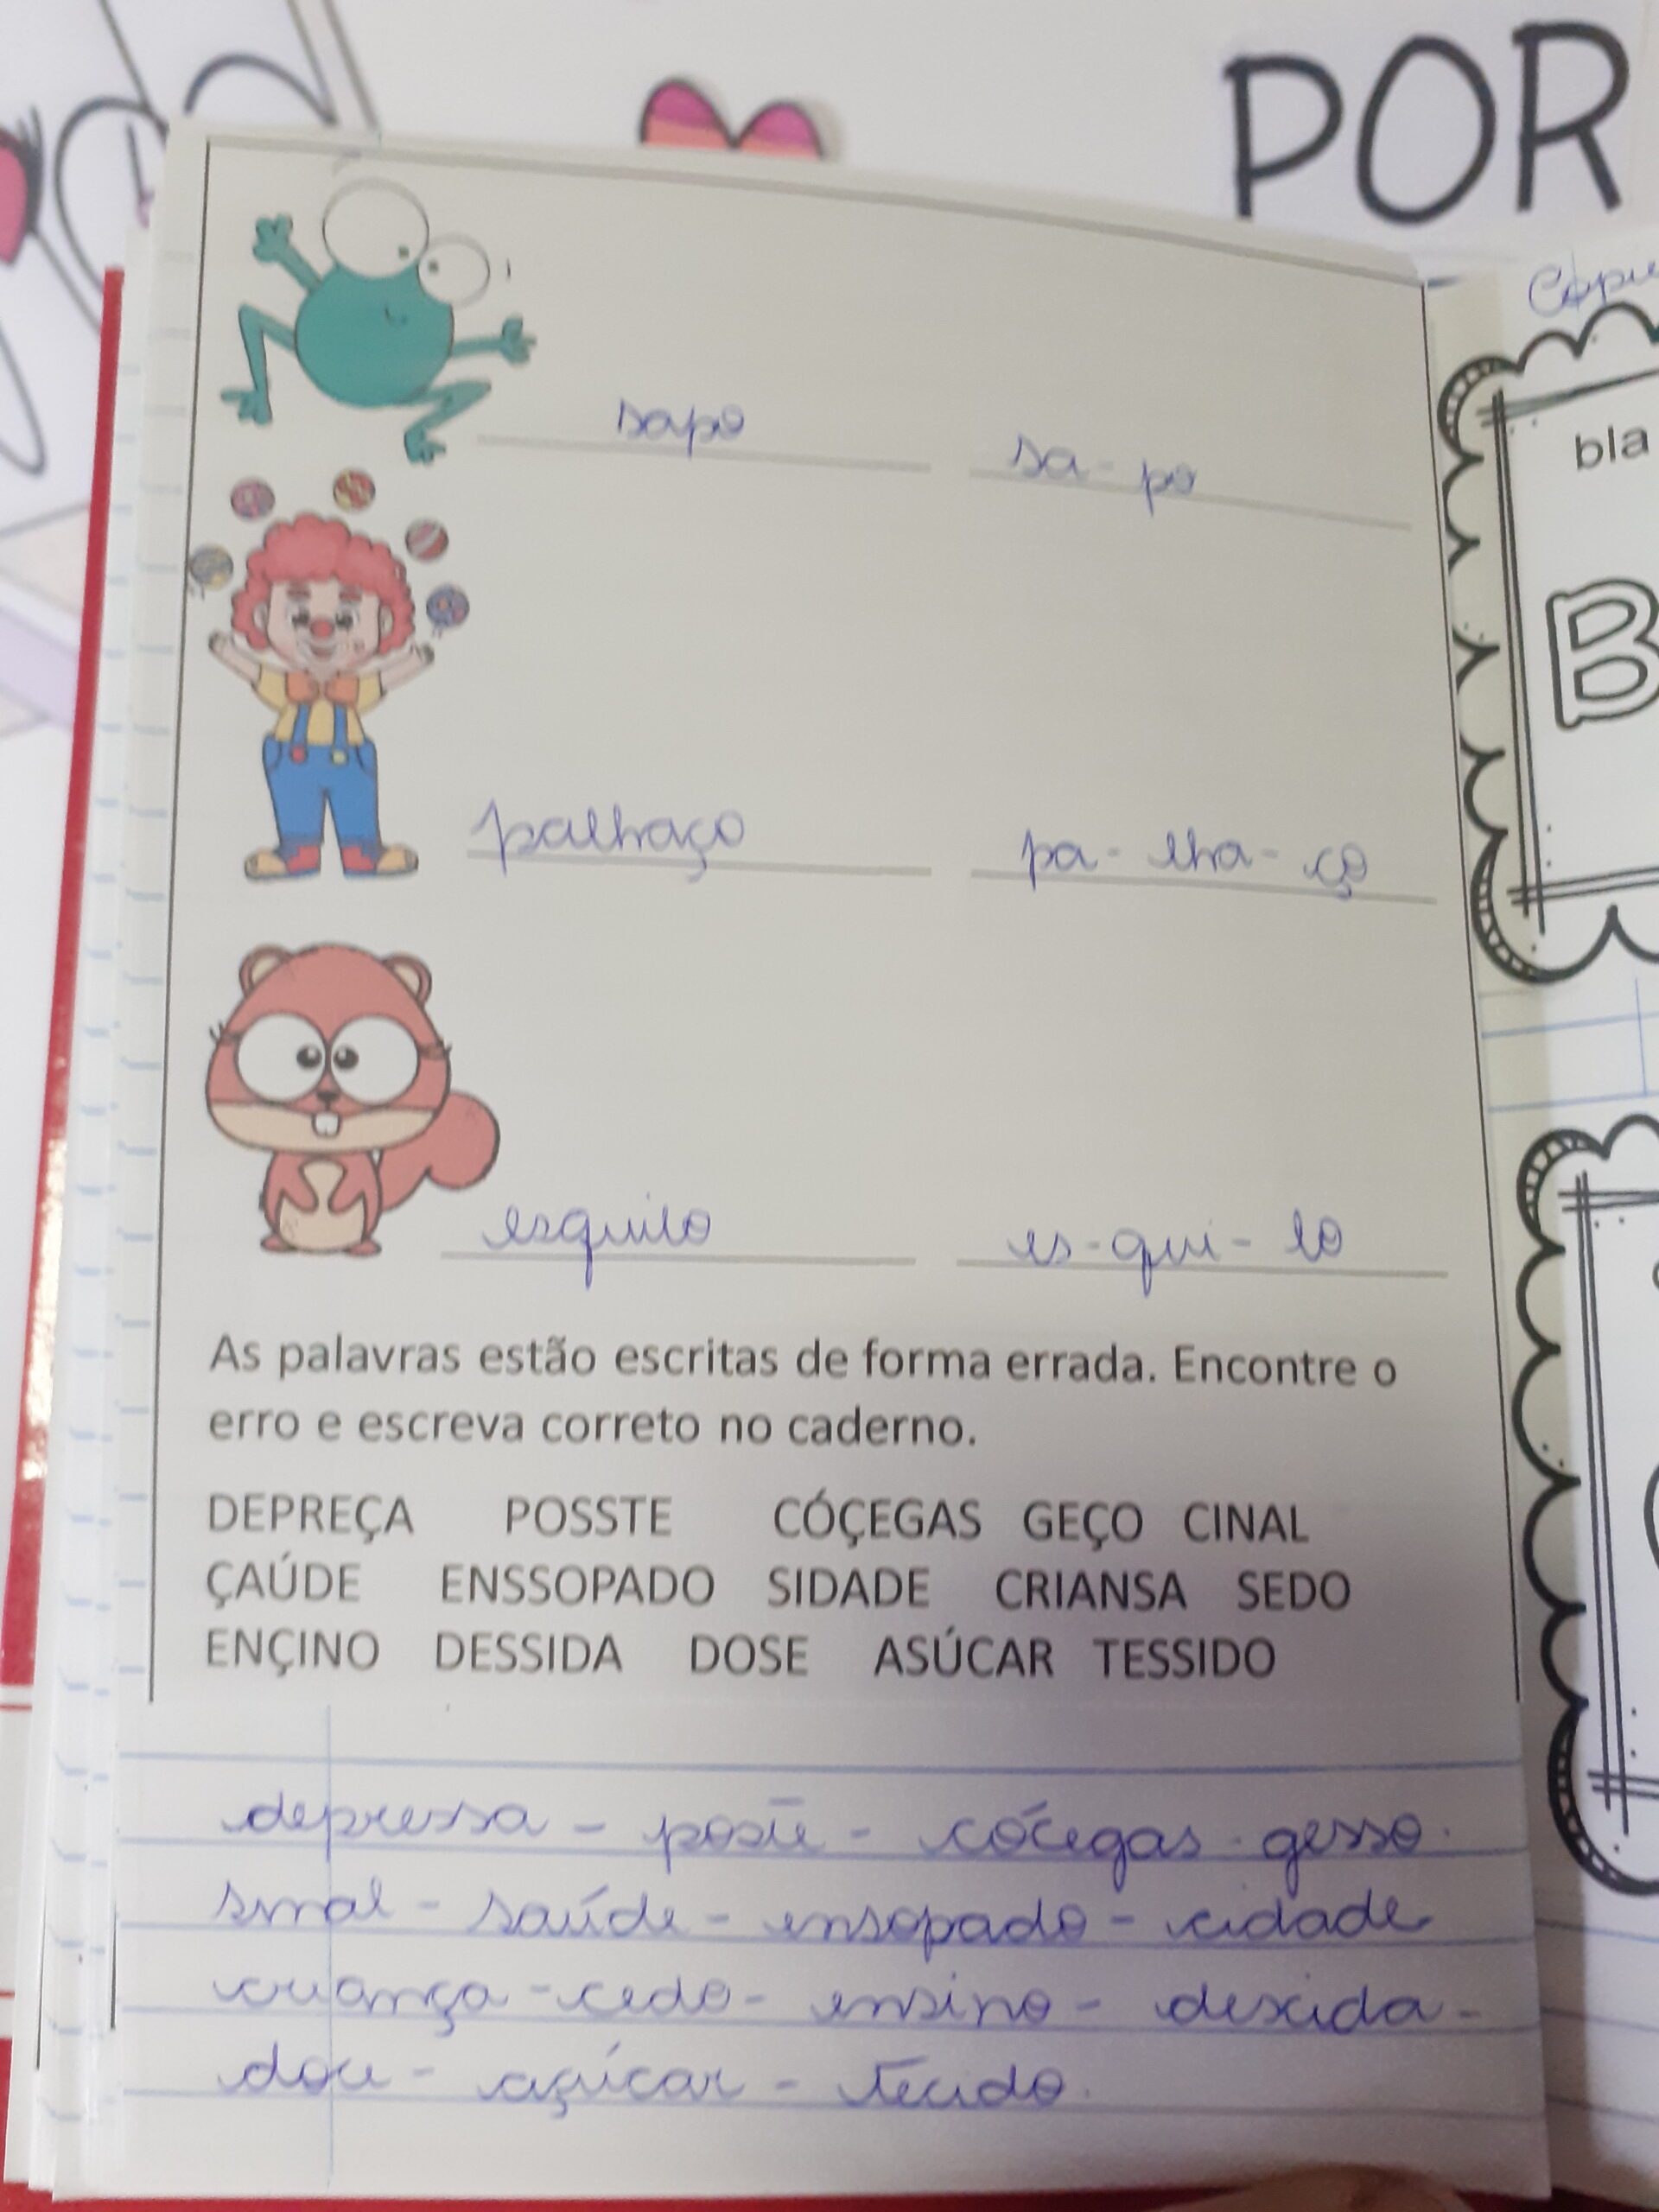 POR
Copie
bla
B
sapo sa-po
palhaço pa-lha-ço
esquilo es-qui-lo
As palavras estão escritas de forma errada. Encontre o
erro e escreva correto no caderno.
DEPREÇA POSSTE CÓÇEGAS GEÇO CINAL
ÇAÚDE ENSSOPADO SIDADE CRIANSA SEDO
ENÇINO DESSIDA DOSE ASÚCAR TESSIDO
depressa - poste - cócegas - gesso.
sinal - saúde - ensopado - cidade
criança - cedo - ensino - descida -
doce - açúcar - tecido.